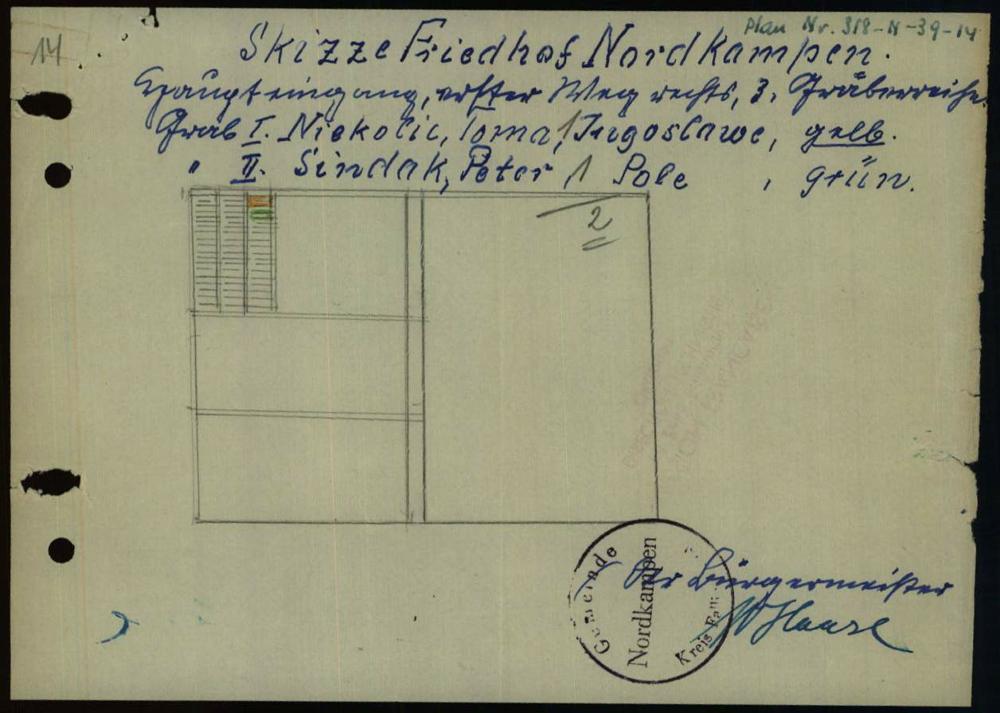 Plan Nr. 318-N-39-14
14
Skizze Friedhof Nordkampen.
Haupteingang, erster Weg rechts, 3. Gräberreihe.
Grab I. Niekolic, Toma, 1 Jugoslawe, gelb.
" II. Sindak, Peter 1 Pole , grün.
2
Der Bürgermeister
W Haase
Gemeinde
Nordkampen
Kreis Fall